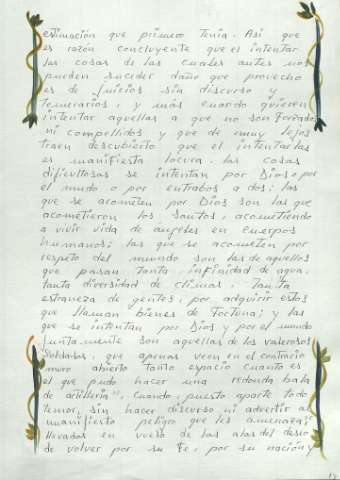 estimación que primero Tenía. Así que
es razón concluyente que el intentar
las cosas de las cuales antes nos
pueden suceder daño que provecho
es de juicios sin discurso y
temerarios, y más cuando quieren
intentar aquellas a que no son forzados
ni compellidos y que de muy lejos
traen descubierto que el intentarlas
es manifiesta locura. las cosas
dificultosas se intentan por Dios o por
el mundo o por entrabos a dos: las
que se acometen por Dios son las que
acometieron los santos, acometiendo
a vivir vida de ángeles en cuerpos
humanos; las que se acometen por
respeto del mundo son las de aquellos
que pasan tanta infinidad de agua,
tanta diversidad de climas, Tanta
estrañeza de gentes, por adquirir estos
que llaman bienes de Fortuna; y las
que se intentan por Dios y por el mundo
juntamente son aquellas de los valerosos
Soldados, que apenas veen en el contrario
muro abierto tanto espacio cuanto es
el que pudo hacer una redonda bala
de artillería, cuando, puesto aparte todo
temor, sin hacer discurso ni advertir al
manifiesto peligro que les amenaza,
llevados en vuelo de las alas del deseo
de volver por su Fe, por su nación y